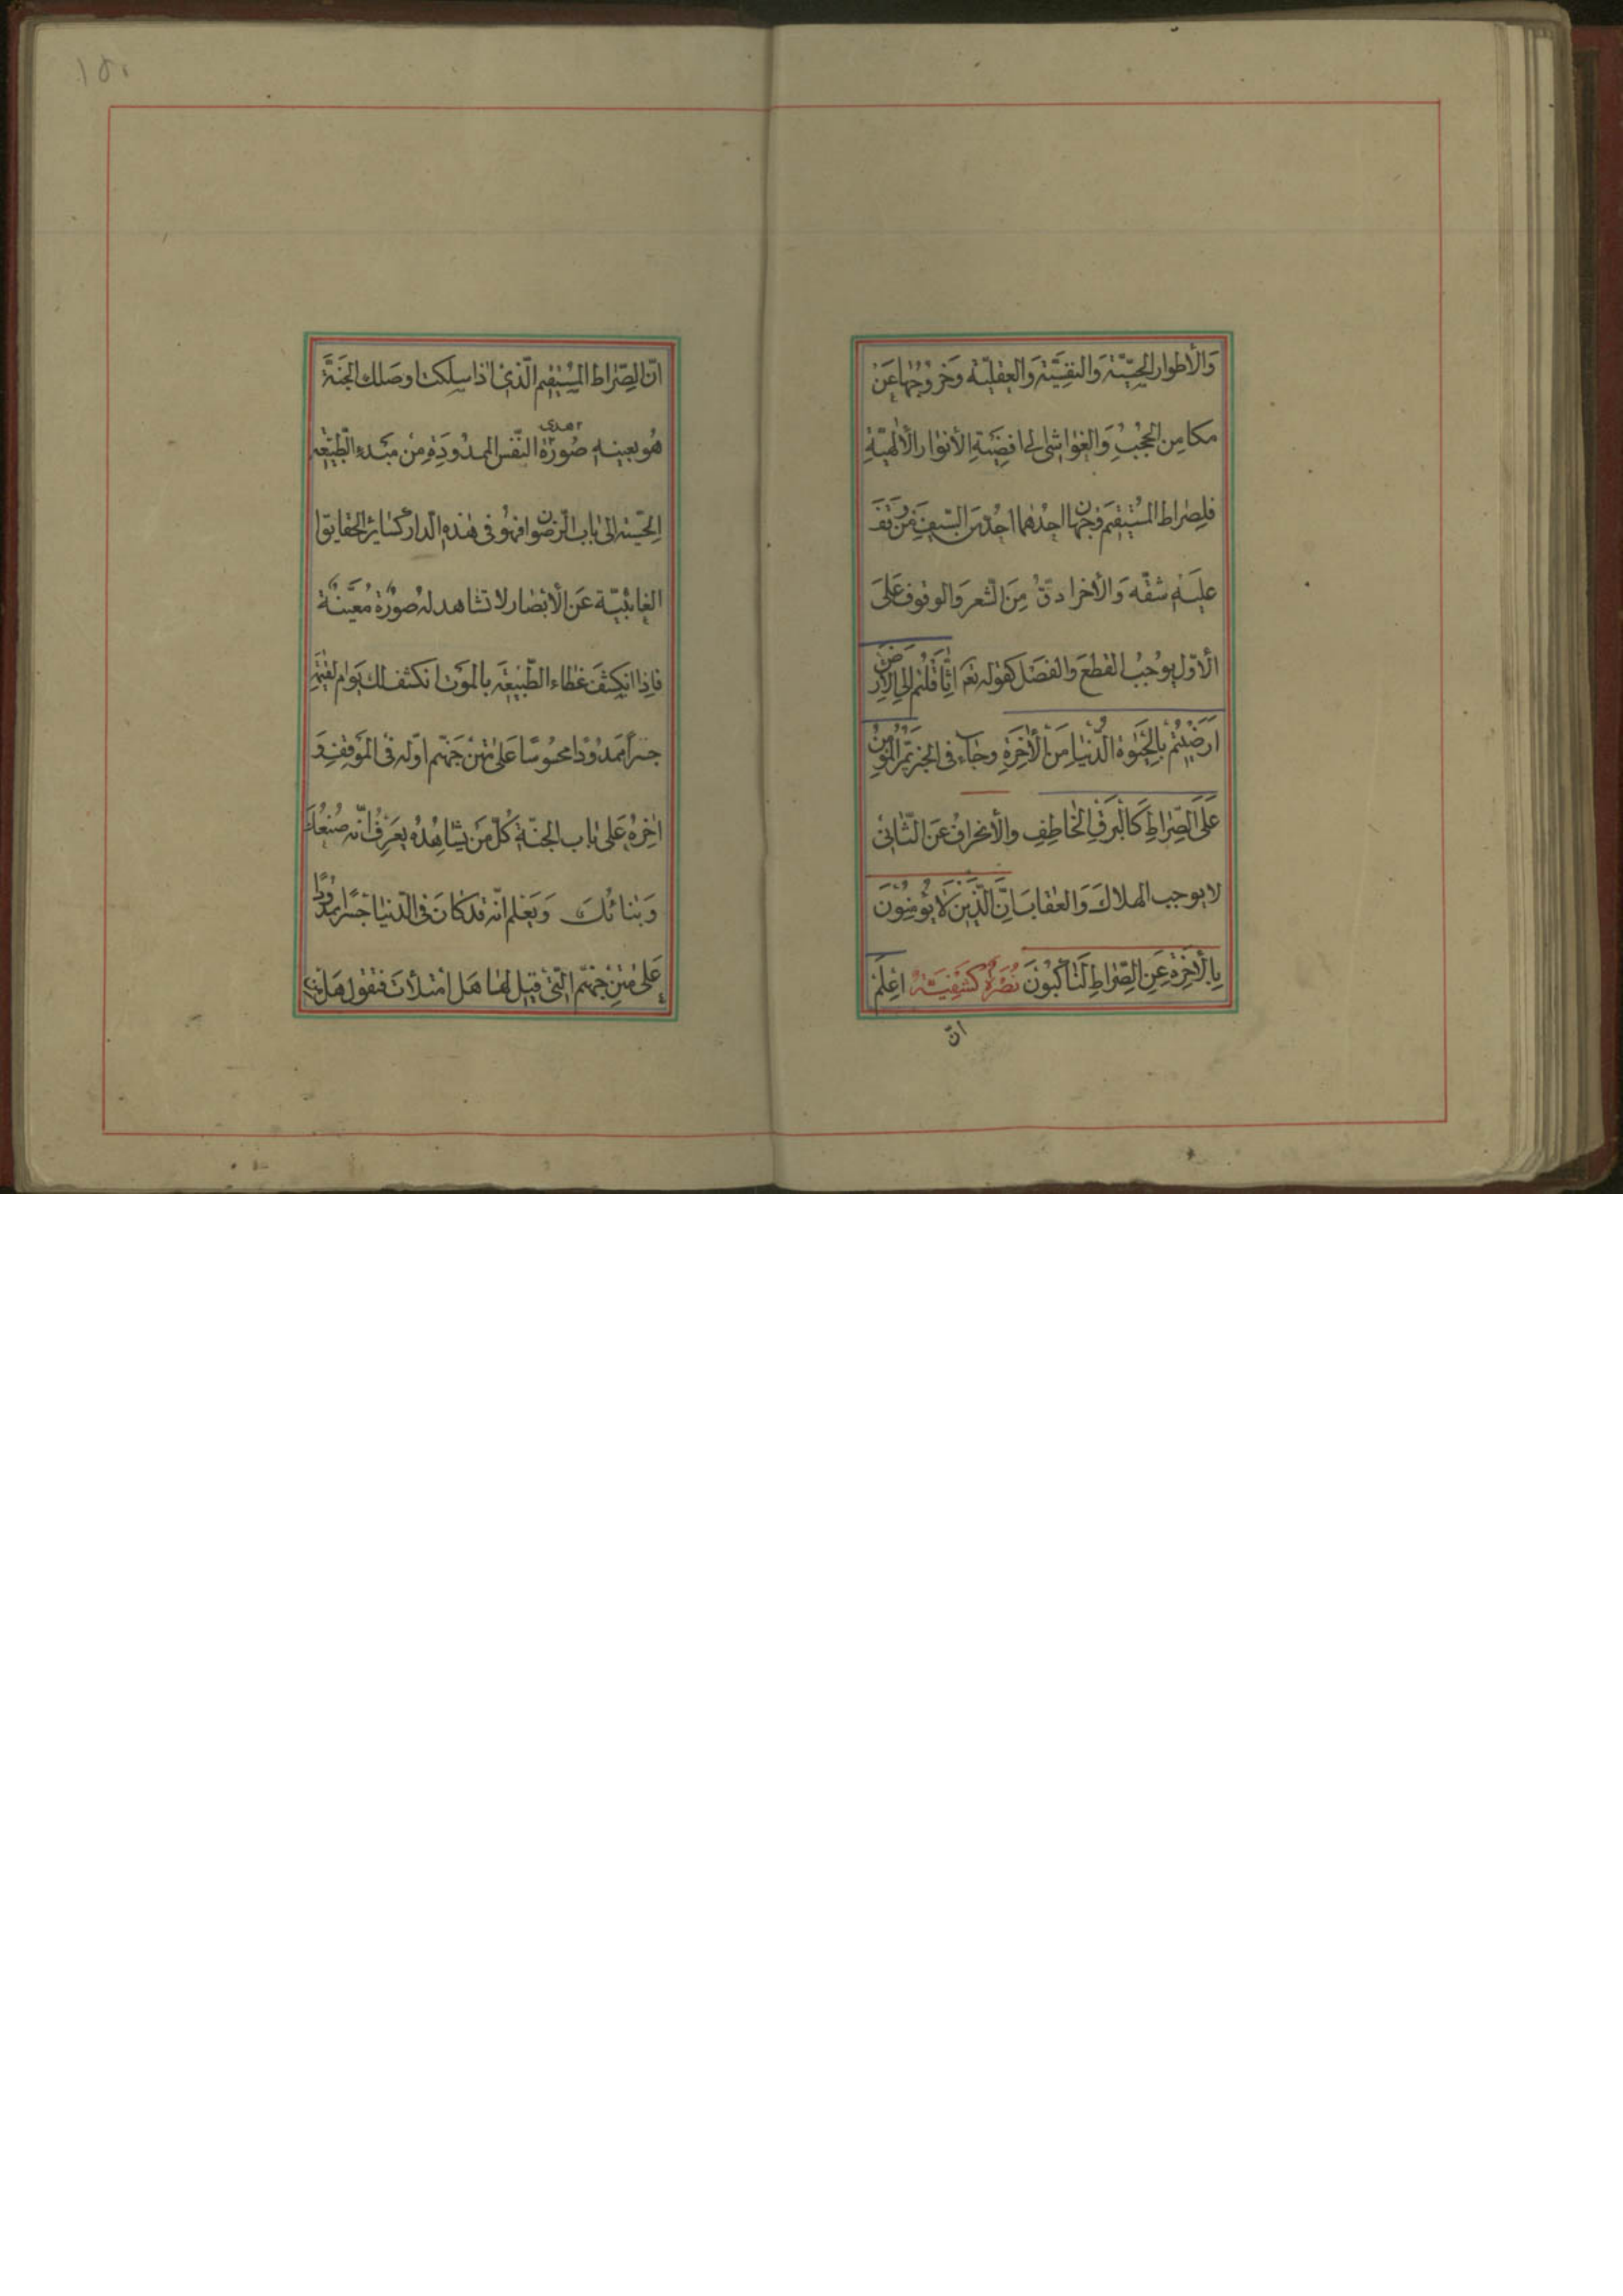 وَالأطوار الحِسِّيَّة وَالنفسِيَّة وَالعقليّة وَخروُجِهٰا عَنْ
مكامِن الحُجُبِ وَالغوٰاشى الى افضِيَةِ الأنوٰار الألٰهيّةِ
فلِصِراط المُسْتقيمِ وَجهٰان احِدُهما احُدّ مِنَ السّيف فمَنْ وَقَفَ
عليَهِ شقّه وَالأخر ادقّ مِنَ الشّعر وَالوقوف عَلَى
الأوّل يوُجبُ القطعَ وَالفصَل كقوله تعَ اثّٰاقَلْتُم اِلَى الارَْضِ
اَرَضيْتُمْ بِالْحَيٰوةِ الدُّنْيٰا مِنَ الْأٰخِرَةِ وجَاءَ فى الخبر يَمُرُّ المُؤمِنُ
عَلَى الصِّرٰاطِ كَالْبَرَقِ الْخٰاطِفِ والأنحرافُ عَنِ الثّانى
لا يوجب الهلاك وَالعقابَ انَّ الَّذينَ لاٰ يُؤْمِنُونَ
بِالْاٰخِرَةِ عَنِ الصِّرٰاطِ لَنٰاكِبُونَ نُصْرَةٌ كَشْفِيَّةٌ اعِلَمْ
انّ
۱۵۰
انّ الصِّرٰاط المُسْتقيم الّذى اذا سلكت اوصَلك الجَنّةَ
هُو بعينه صُورَة النّفس الممدُودَةِ مِنْ مَبْدء الطّبيعَة
الِحّسيّة الى بٰاب الرّضوان فهُو فى هٰذه الدّار كسٰائر الحقايق
الغٰائبيّة عَن الأبصٰار لا تشاهد له صُورَة مُعَيَّنَةٌ
فاِذا انكشَفَ غطٰاء الطّبيعَة بالموَت انكشف لك يَوم القيٰمَةِ
جسراً ممَدُودًا محسُوسًا عَلى متن جَهَنّم اوّله فى المَوقِف وَ
اٰخِرهُ عَلى بٰاب الجنّة كُلّ مَن يشٰاهِدُهُ يعَرِفُ انّه صُنعُكَ
وَبنائكَ وَيَعلم انّه قد كٰانَ فى الدّنيٰا جسرًا ممدُودًا
عَلى متنِ جَهَنّم الّتى قيل لهٰا هَل امْتلأت فتقول هَل مِنْ